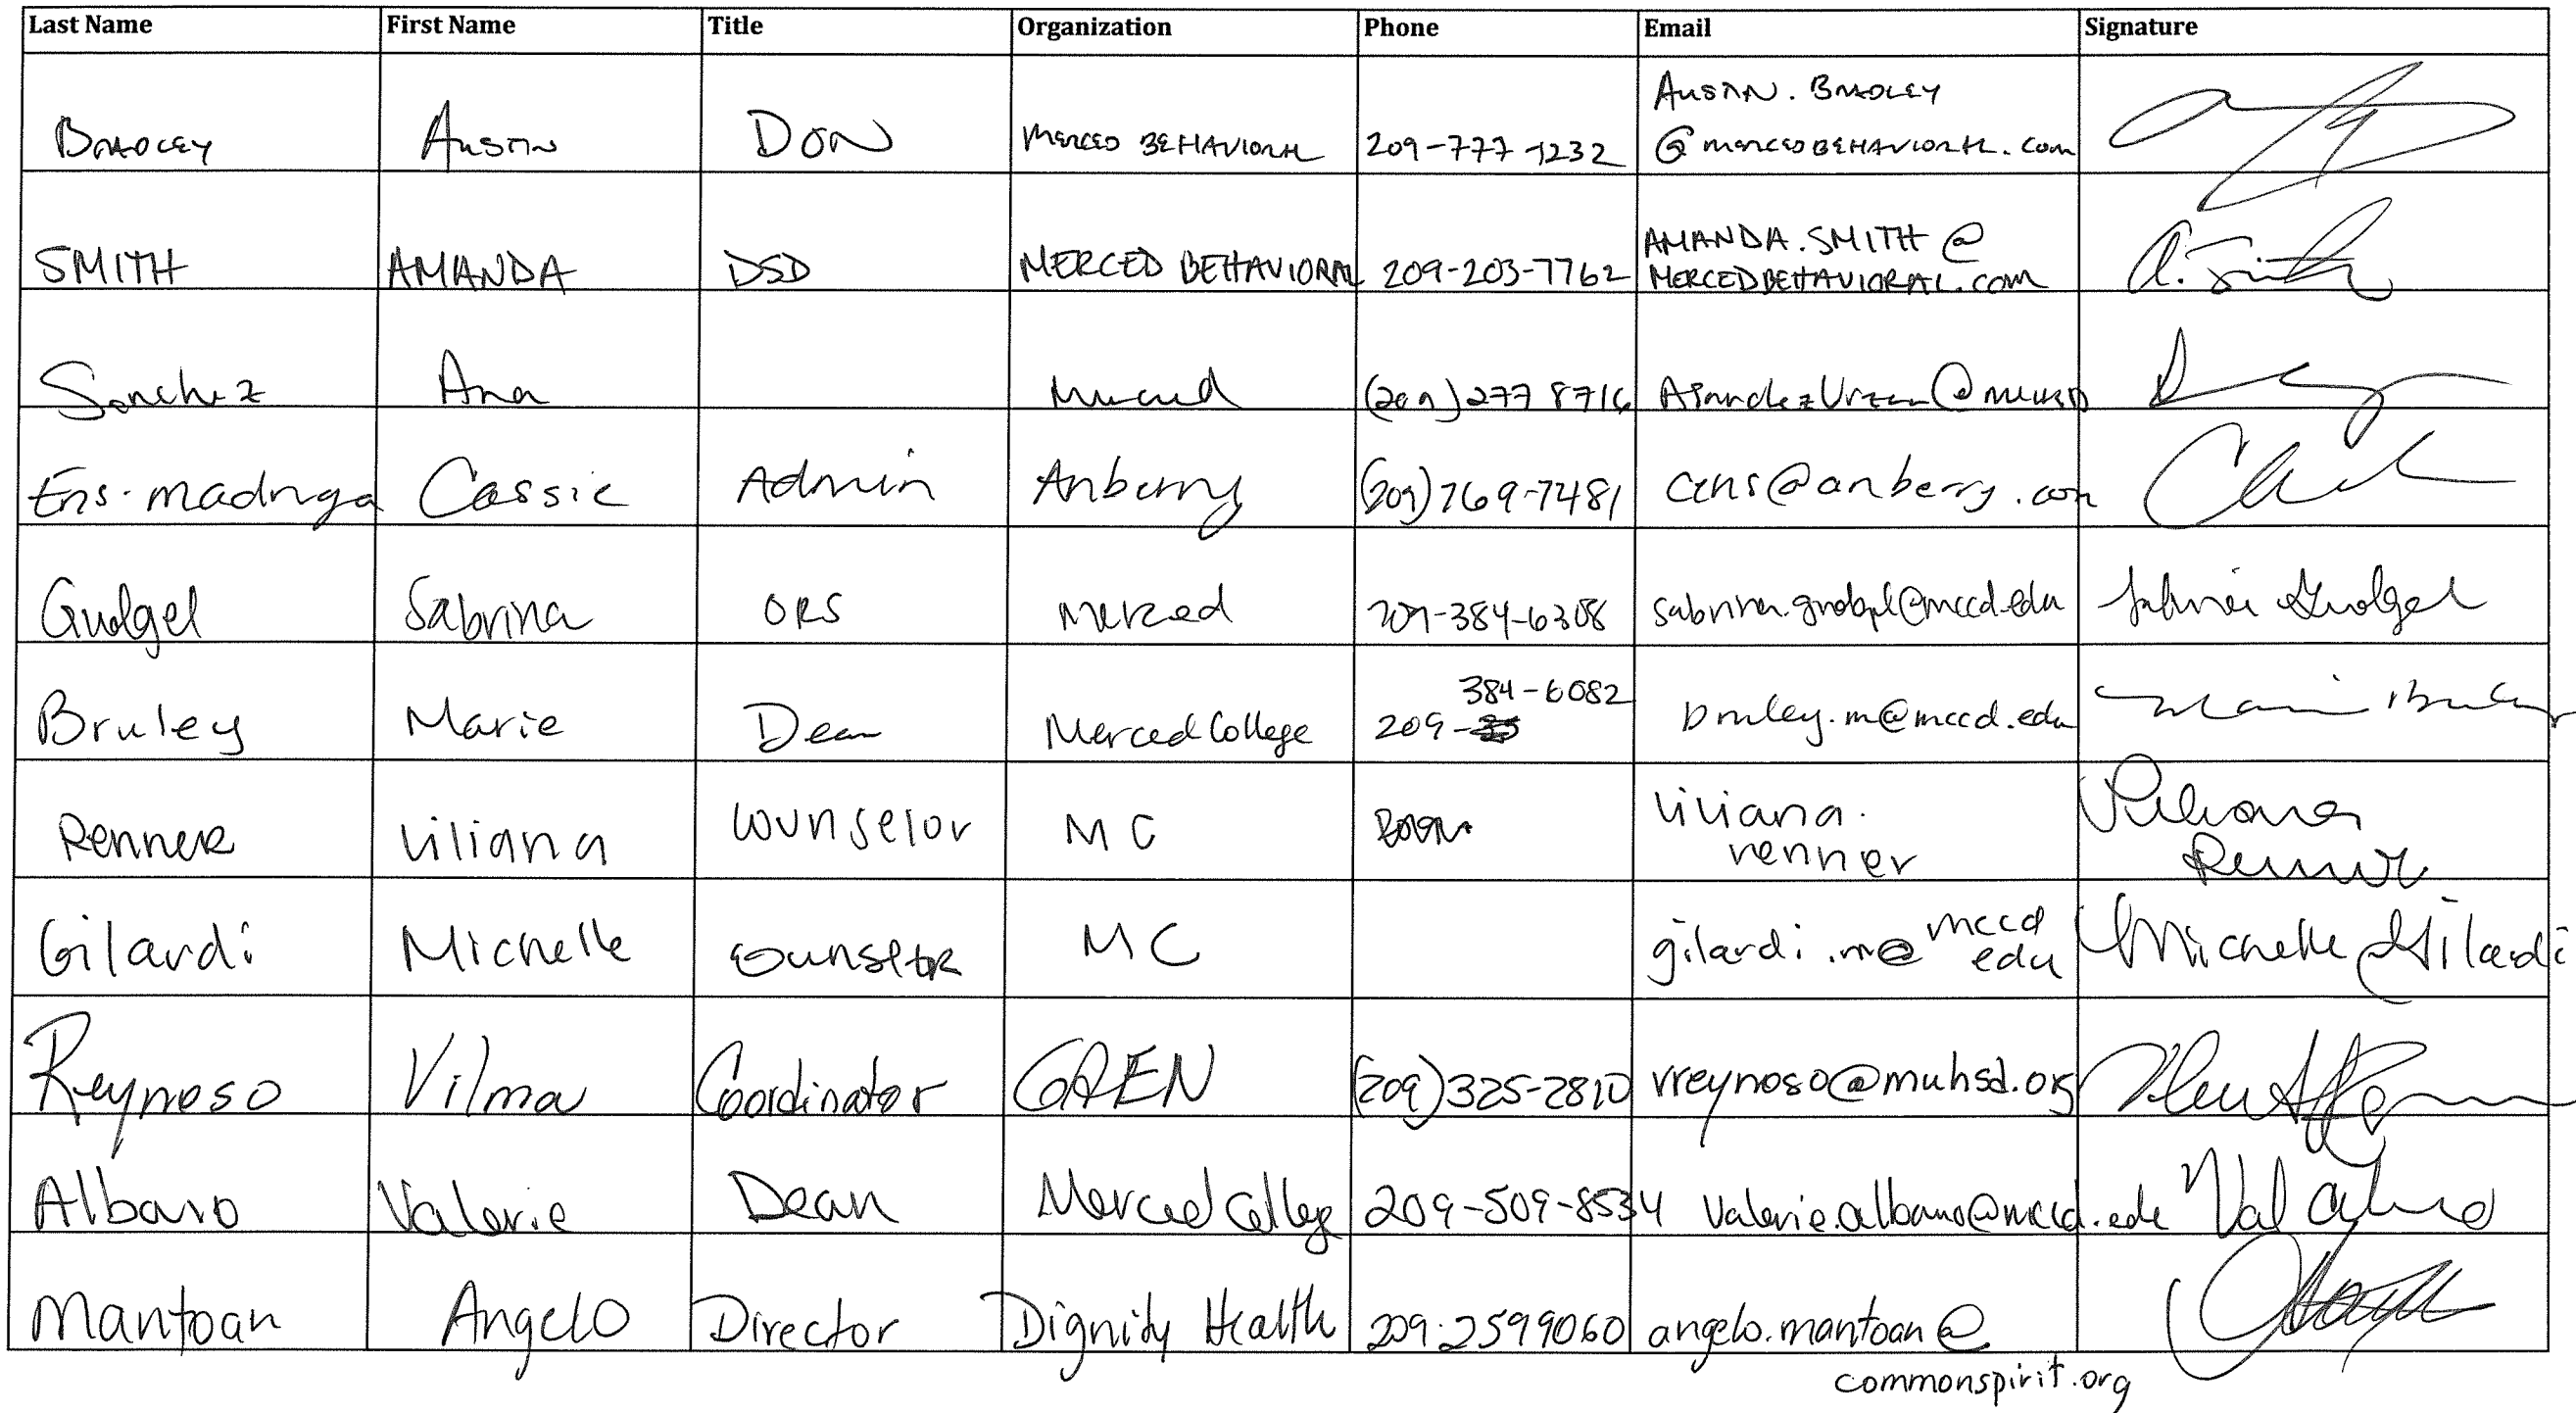 Last Name First Name Title Organization Phone Email Signature
BRADLEY AUSTIN DON MERCED BEHAVIORAL 209-777-1232 AUSTIN.BRADLEY
@MERCEDBEHAVIORAL.COM
SMITH AMANDA DSD MERCED BEHAVIORAL 209-203-7762 AMANDA.SMITH@ A. Smith
MERCEDBEHAVIORAL.COM
Sanchez Ana Merced (209)277 8716
Ens-madriga Cassie Admin Anberry (209)769-7481 cens@anberry.com
Gudgel Sabrina ORS Merced 209-384-6308 sabrina.gudgel@mccd.edu Sabrina Gudgel
Bruley Marie Dean Merced College 209- 384-6082 bruley.m@mccd.edu Marie Bruley
Renner Liliana Counselor MC liliana. Liliana
renner Renner
Gilardi Michelle Counselor MC gilardi.m@mccd Michelle Gilardi
edu
Reynoso Vilma Coordinator (209)325-2810 vreynoso@muhsd.org
Albano Valerie Dean Merced College 209-509-8534 valerie.albano@mccd.edu Val Albano
Mantoan Angelo Director Dignity Health 209.2599060 angelo.mantoan@
commonspirit.org